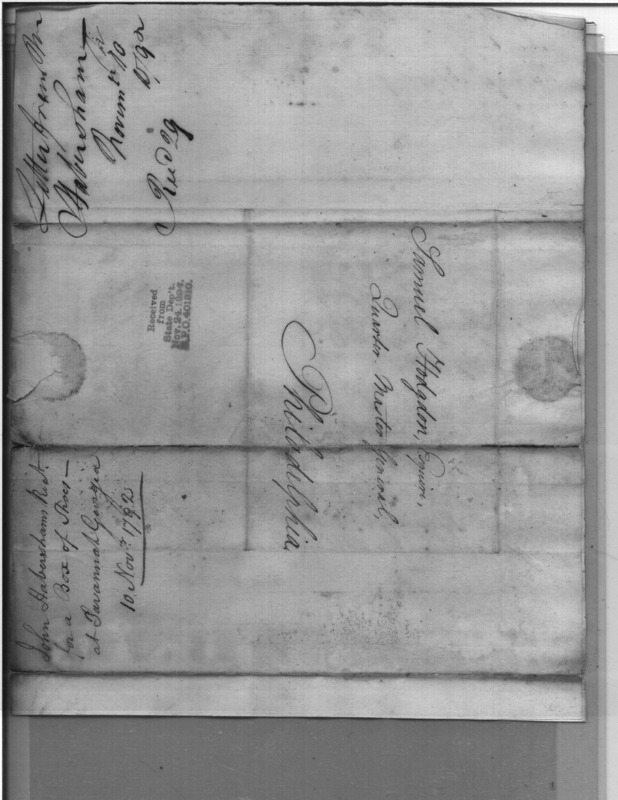 Letter from Mr
Habersham
Novemr. 10
1792
Recd 29
Received
from
State Dep't.
Nov. 24, 1894,
R.P.O. 401810.
Samuel Hodgdon, Esquire,
Quarter Master General,
Philadelphia
John Habersham's Rect.
for a Box of Shoes —
at Savannah Georgia
10 Novr. 1792